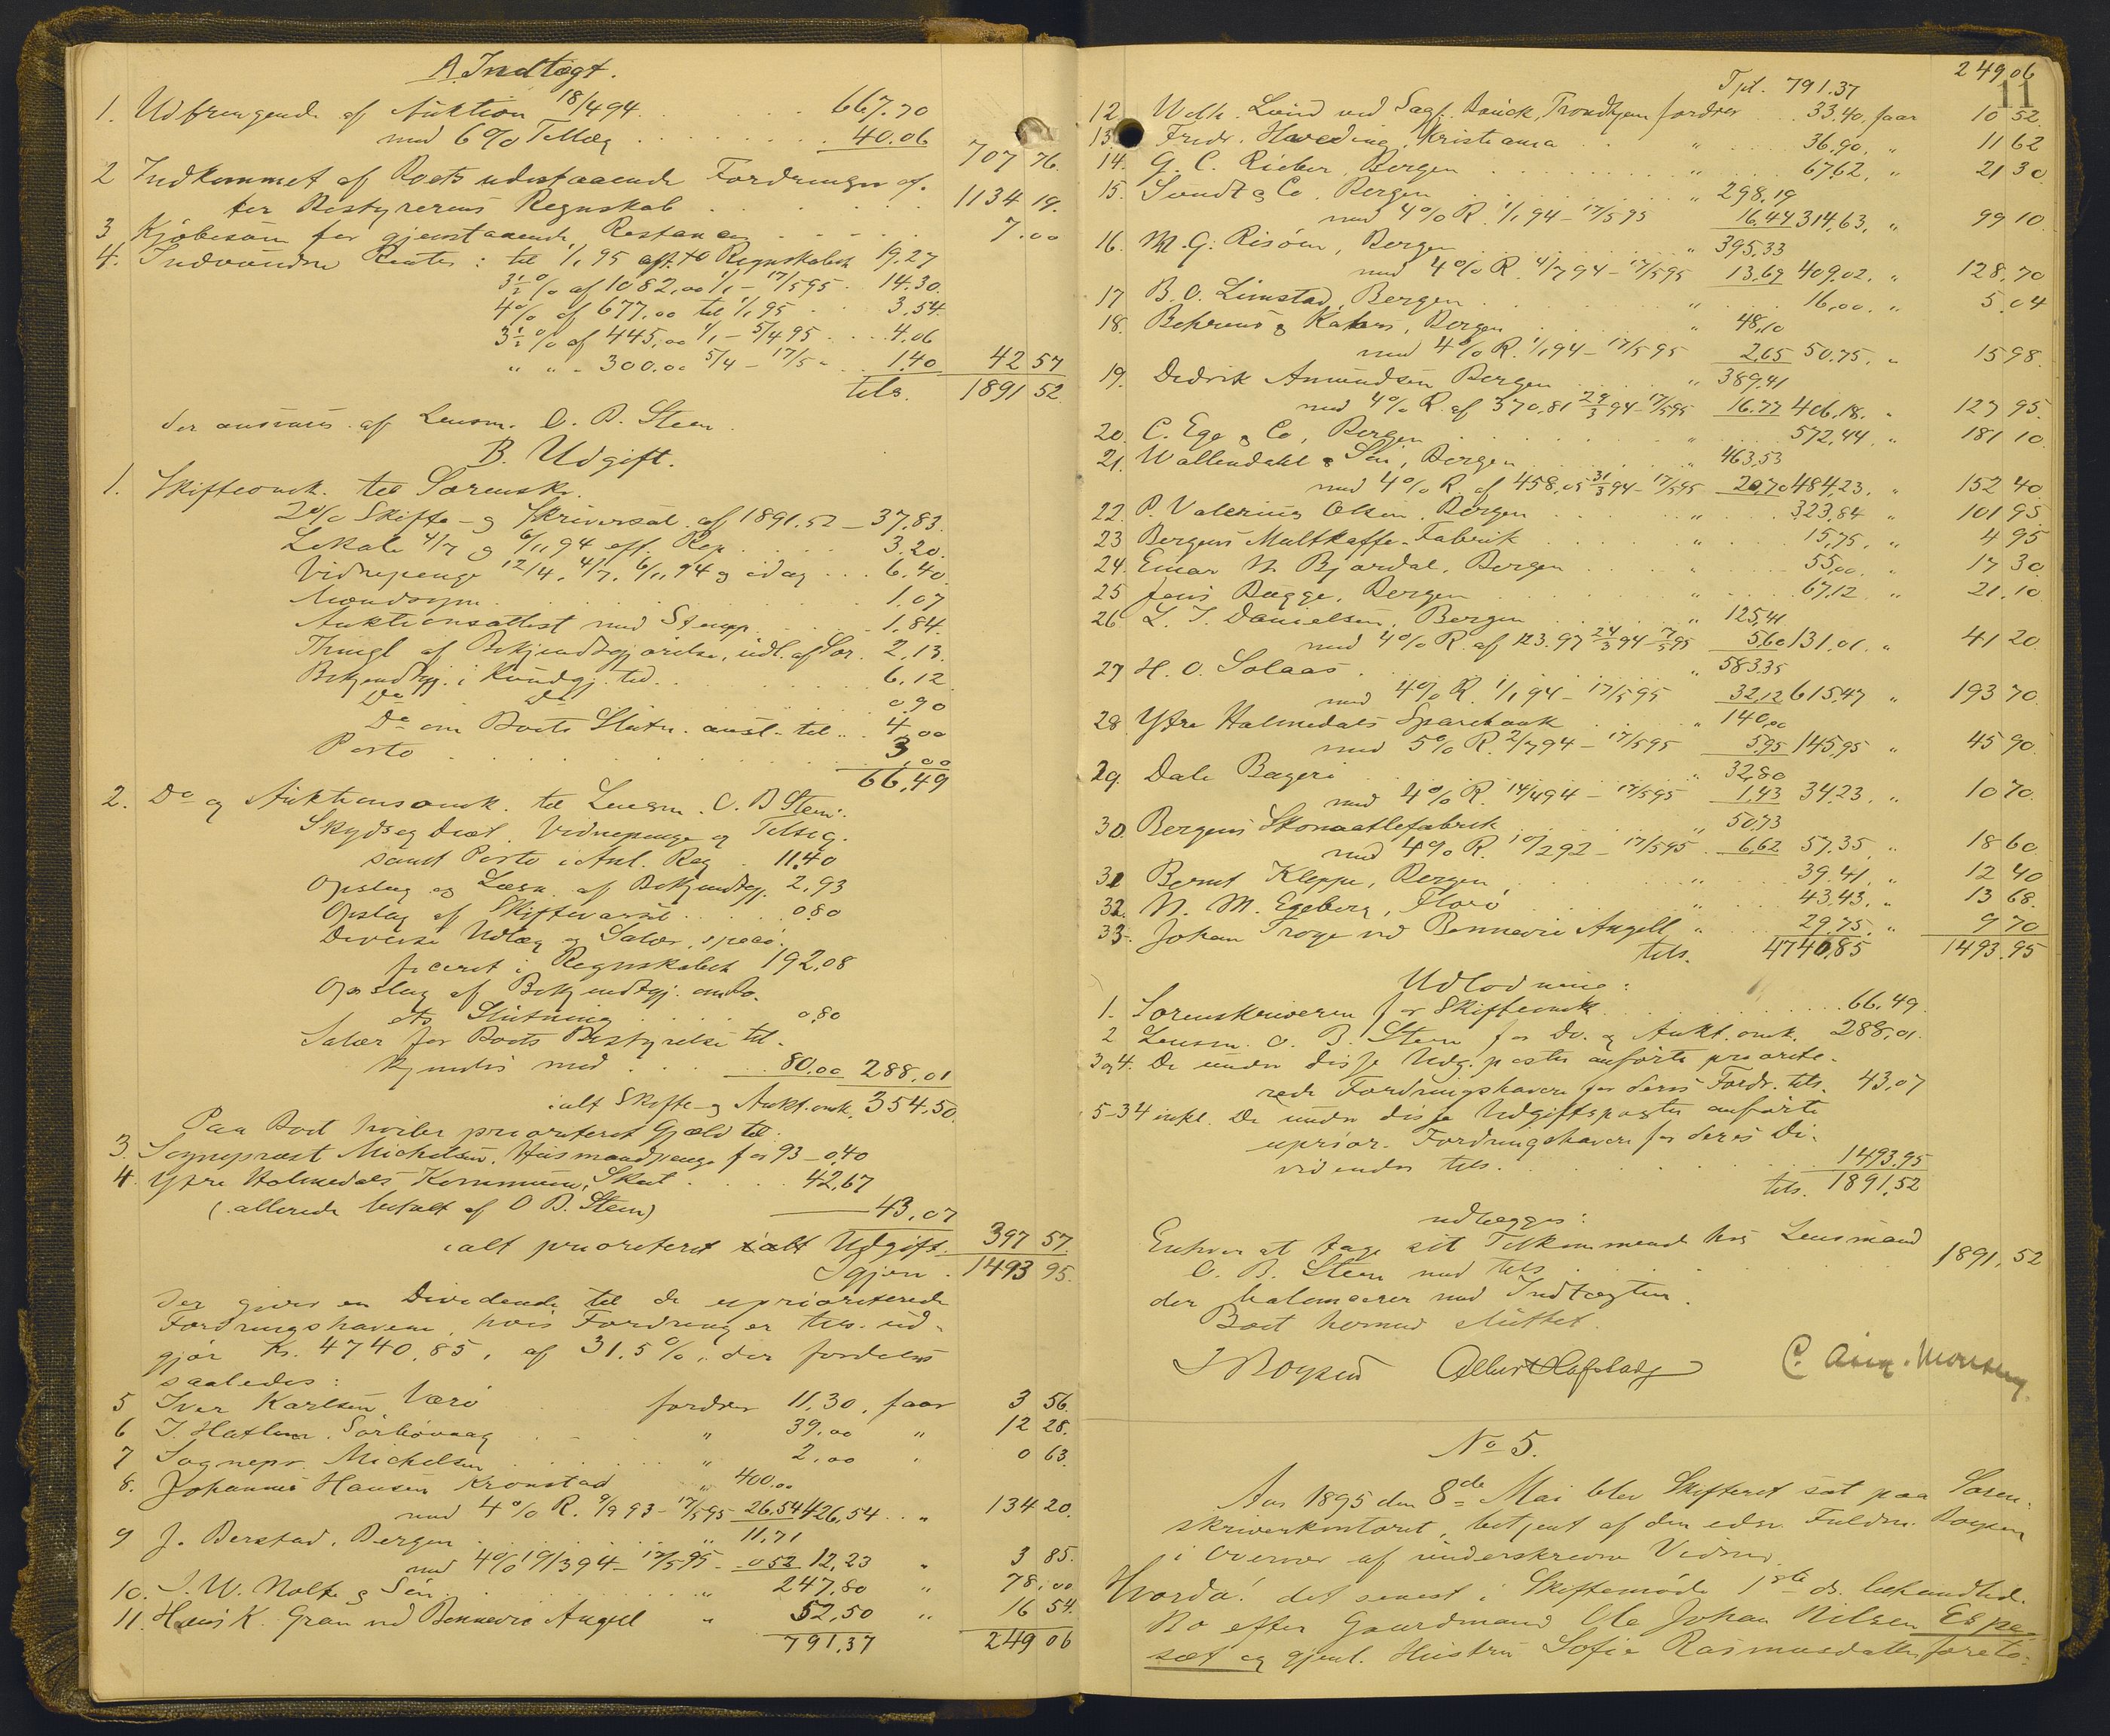 A. Indtægt.
1. Udbringende af Auktion 18/4 94 . . . 667.70
med 6% Tillæg . . . 40.06
707 76.
2 Indkommet af Boets udestaaende Fordringer ef-
ter Bestyrerens Regnskab . . . 1134 19.
3 Kjøbesum for gjenstaaende Restancer . . . 7.00
4. Indvundne Renter: til 1/1 95 Regnskabet 19.27
3½% af 1082,00 1/1 - 17/5 95 . 14.30.
4% af 677.00 til 1/1 95 . . 3.54.
3½% af 445,00 1/1 - 5/4 95 . . . 4.06
" " - 300.00 5/4 - 17/5 - . . 1.40 42 57
tils. 1891 52.
der ansvares af Lensm. O. B. Steen.
B. Udgift.
1. Skifteomk. til Sorenskr.
2% Skifte- og Skriversal. af 1891.52 - 37.83.
Lokale 4/7 og 6/11 94 eft. Reg . . . 3.20.
Vidnepenge 12/4, 4/7, 6/11 94 og idag . . . 6.40.
. . . 1.07
Auktionsattest med Stemp. . . . 1.84.
Thingl. af Bekjendtgjørelse, udl. af Sor. 2.13.
Bekjendtgj. i Kundgj. tid. . . . 6.12
Do Do . . . 0.90
Do om Boets Slutn. ansl. til . . 4.00
Porto . . . 3.00
66,49
2. Do og Auktionsomk. til Lensm. O. B. Steen:
Skyds og Diæt, Vidnepenge og Tilsig.
samt Porto i Anl. Reg. 11.40
Opslag og Læsn. af Bekjendtgj. 2.93
Opslag af Skiftevarsel . . . 0.80
Diverse Udlæg og Salær, speci-
ficeret i Regnskabet 192.08
Opslag af Bekjendtgj. om Bo-
ets Slutning . . . 0.80
Salær for Boets Bestyrelse til-
kjendes med . . . 80.00 288.01
ialt Skifte- og Aukt.omk. 354.50.
Paa Boet hviler prioriteret Gjæld til:
3. Sogneprest Michelsen, Husmandspenge for 93 - 0.40
4. Ytre Holmedals Kommune, Skat . . . 42.67
(allerede betalt af O B. Steen) 43.07
ialt prioriteret Udgift. 397 57.
Igjen . 1493 95.
Der gives en Dividende til de uprioriterede
Fordringshavere, hvis Fordringer tils. ud-
gjør Kr. 4740.85, af 31.5%, der fordeles
saaledes:
5 Iver Karlsen Værø fordrer 11.30, faar 3 56.
6 J. Hatlem, Sørbøvaag . . . " 39.00 " 12 28.
7 Sognepr. Michelsen . . . " 2.00 " 0 63.
8. Johannes Hansen Kronstad " 400.00
med 4% R. 9/9 93 - 17/5 95 - 26.54 426.54 . . " 134 20.
9 J. Berstad, Bergen . . . " 11.71
med 4% 19/3 94 - 17/5 95 - 0.52 12.23 " 3 85.
10. J. W. Nolte & Søn . . . " 247.80 " 78.00
11. Hans K. Gran ved Bennecke Angell " 52.50 " 16 54.
791.37 249 06
11
Tpt. 791.37 249 06
12. Wilh. Lund ved Sagf. Bauck, Trondhjem fordrer 33.40, faar 10 52.
13. Fredr. Kristiania . . . " 36.90. " 11 62
14. G. C. Rieber, Bergen . . . " 67.62. " 21 30
15. Sundt & Co, Bergen . . . " 298.19
med 4% R. 1/1 94 - 17/5 95 16.44 314.63. " 99 10.
16. M. G. Risøen, Bergen . . . " 395.33
med 4% R. 4/7 94 - 17/5 95 13.69 409.02. " 128.70
17 B. O. Limstad, Bergen . . . " 16.00. " 5 04
18. Behrens & Kahrs, Bergen . . . " 48.10
med 4% R. 1/1 94 - 17/5 95 2.65 50.75. " 15 98.
19. Didrik Amundsen Bergen . . . " 389.41
med 4% R. af 370.81 29/3 94 - 17/5 95 16.77 406.18. " 127 95.
20. C. Ege & Co, Bergen . . . " 572.44. " 181 10.
21. Wallendahl & Søn, Bergen . . . " 463.53
med 4% R. af 458.05 31/3 94 - 17/5 95 20.70 484.23. " 152 40.
22. P. Valerius Olsen, Bergen . . . " 323.84 " 101 95
23 Bergens Maltkaffe-Fabrik . . . " 15.75. " 4 95
24. Einar N. Bjordal, Bergen . . . " 55.00. " 17 30
25 Jens Bugge, Bergen . . . " 67.12. " 21.10
26 L. J. Danielsen, Bergen . . . " 125.41
med 4% R. af 123.97 24/3 94 - 7/5 95 5.60 131.01. " 41 20.
27 H. O. Solaas . . . " 583.35
med 4% R. 1/1 94 - 17/5 95 32.12 615.47 " 193 70.
28. Ytre Holmedals Sparebank . . . " 140.00
med 5% R. 2/7 94 - 17/5 95 5.95 145.95 " 45 90.
29. Dale Bageri . . . " 32.80
med 4% R. 14/4 94 - 17/5 95 1.43 34.23. " 10 70.
30. Bergens Skomaallefabrik . . . " 50.73
med 4% R. 10/2 92 - 17/5 95 6.62 57.35 " 18 60.
31 Bernt Kleppe, Bergen . . . " 39.41. " 12 40
32. N. M. Egeberg, Florø . . . " 43.43. " 13 68.
33. Johan Troye ved Bennecke Angell " 29.75. " 9 70
tils. 4740.85 1493.95
Udlodning:
1. Sorenskriveren for Skifteomk. . . . 66.49.
2 Lensm. O. B. Steen for Do. og Aukt.omk. 288.01.
3 og 4. De under disse Udg.poster anførte priorite-
rede Fordringshavere for deres Fordr. tils. 43.07
5-34 inkl. De under disse Udgiftsposter anførte
uprior. Fordringshavere for deres Di-
videnden tils. . . . 1493.95
tils. 1891.52
udlægges:
Enhver at tage sit Tilkommende hos Lensmand
O. B. Steen med tils. . . . 1891.52
der balancerer med Indtægten.
Boet hermed sluttet.
J Boysen Albert Hafstad C. Aug. Monsen
No 5.
Aar 1895 den 8de Mai blev Skifteret sat paa Soren-
skriverkontoret, betjent af den edsv. Fuldm. Boysen
i Overvær af underskrevne Vidner.
Hvorda: det senest i Skiftemøde 1ste ds. behandled.
Bo efter Gaardmand Ole Johan Nilsen Espe-
sæt og gjenl. Hustru Sofie Rasmusdatter foreto-